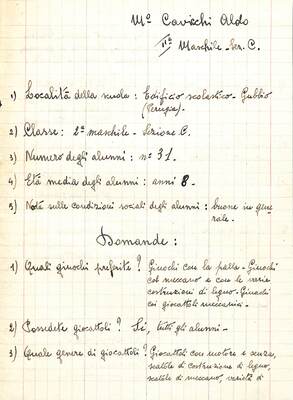 Mº Cavicchi Aldo
IIª Maschile - Sez. C.
1) Località della scuola: Edificio scolastico - Gubbio
(Perugia).
2) Classe: 2ª maschile - Sezione C.
3) Numero degli alunni: nº 31.
4) Età media degli alunni: anni 8.
5) Note sulle condizioni sociali degli alunni: buone in gene
rale.
Domande:
1) Quali giuochi preferite? Giuochi con la palla - Giuochi
col meccano e con le varie
costruzioni di legno - Giuochi
coi giocattoli meccanici.
2) Possedete giocattoli? Sì, tutti gli alunni -
3) Quale genere di giocattoli? Giocattoli con motore e senza,
scatole di costruzione di legno,
scatole di meccano, varietà di